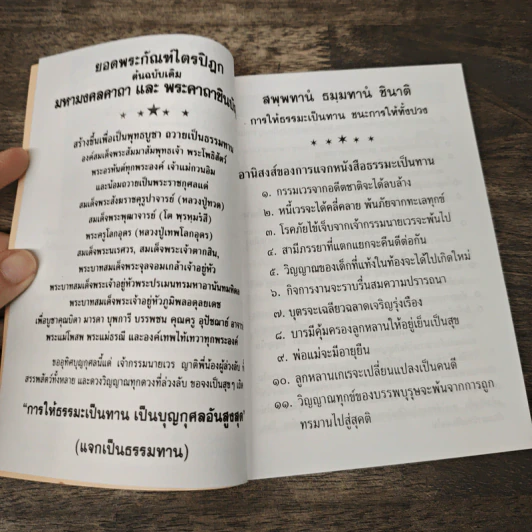 ยอดพระกัณฑ์ไตรปิฎก
ต้นฉบับเดิม
มหามงคลคาถา และ พระคาถาชินบั
สร้างขึ้นเพื่อเป็นพุทธบูชา ถวายเป็นธรรมทาน
องค์สมเด็จพระสัมมาสัมพุทธเจ้า พระโพธิสัตว์
พระอรหันต์ทุกพระองค์ เจ้าแม่กวนอิม
และน้อมถวายเป็นพระราชกุศลแด่
สมเด็จพระสังฆราชครูปาจารย์ (หลวงปู่ทวด)
สมเด็จพระพุฒาจารย์ (โต พฺรหฺมรํสี)
พระครูโลกอุดร (หลวงปู่เทพโลกอุดร)
สมเด็จพระนเรศวร, สมเด็จพระเจ้าตากสิน,
พระบาทสมเด็จพระจุลจอมเกล้าเจ้าอยู่หัว
พระบาทสมเด็จพระเจ้าอยู่หัวพระปรเมนทรมหาอานันทมหิดล
พระบาทสมเด็จพระเจ้าอยู่หัวภูมิพลอดุลยเดช
เพื่อบูชาคุณบิดา มารดา บุพการี บรรพชน คุณครู อุปัชฌาย์ อาจาร
พระแม่โพสพ พระแม่ธรณี และองค์เทพไท้เทวาทุกพระองค์
ขออุทิศบุญกุศลนี้แด่ เจ้ากรรมนายเวร ญาติพี่น้องผู้ล่วงลับ
สรรพสัตว์ทั้งหลาย และดวงวิญญาณทุกดวงที่ล่วงลับ ขอจงเป็นสุขๆ
"การให้ธรรมะเป็นทาน เป็นบุญกุศลอันสูงสุด"
(แจกเป็นธรรมทาน)
สพฺพทานํ ธมฺมทานํ ชินาติ
การให้ธรรมะเป็นทาน ชนะการให้ทั้งปวง
อานิสงส์ของการแจกหนังสือธรรมะเป็นทาน
๑. กรรมเวรจากอดีตชาติจะได้ลบล้าง
๒. หนี้เวรจะได้คลี่คลาย พ้นภัยจากทะเลทุกข์
๓. โรคภัยไข้เจ็บจากเจ้ากรรมนายเวรจะพ้นไป
๔. สามีภรรยาที่แตกแยกจะคืนดีต่อกัน
๕. วิญญาณของเด็กที่แท้งในท้องจะได้ไปเกิดใหม่
๖. กิจการงานจะราบรื่นสมความปรารถนา
๗. บุตรจะเฉลียวฉลาดเจริญรุ่งเรือง
๘. บารมีคุ้มครองลูกหลานให้อยู่เย็นเป็นสุข
๙. พ่อแม่จะมีอายุยืน
๑๐. ลูกหลานเกเรจะเปลี่ยนแปลงเป็นคนดี
๑๑. วิญญาณทุกข์ของบรรพบุรุษจะพ้นจากการถูก
ทรมานไปสู่สุคติ